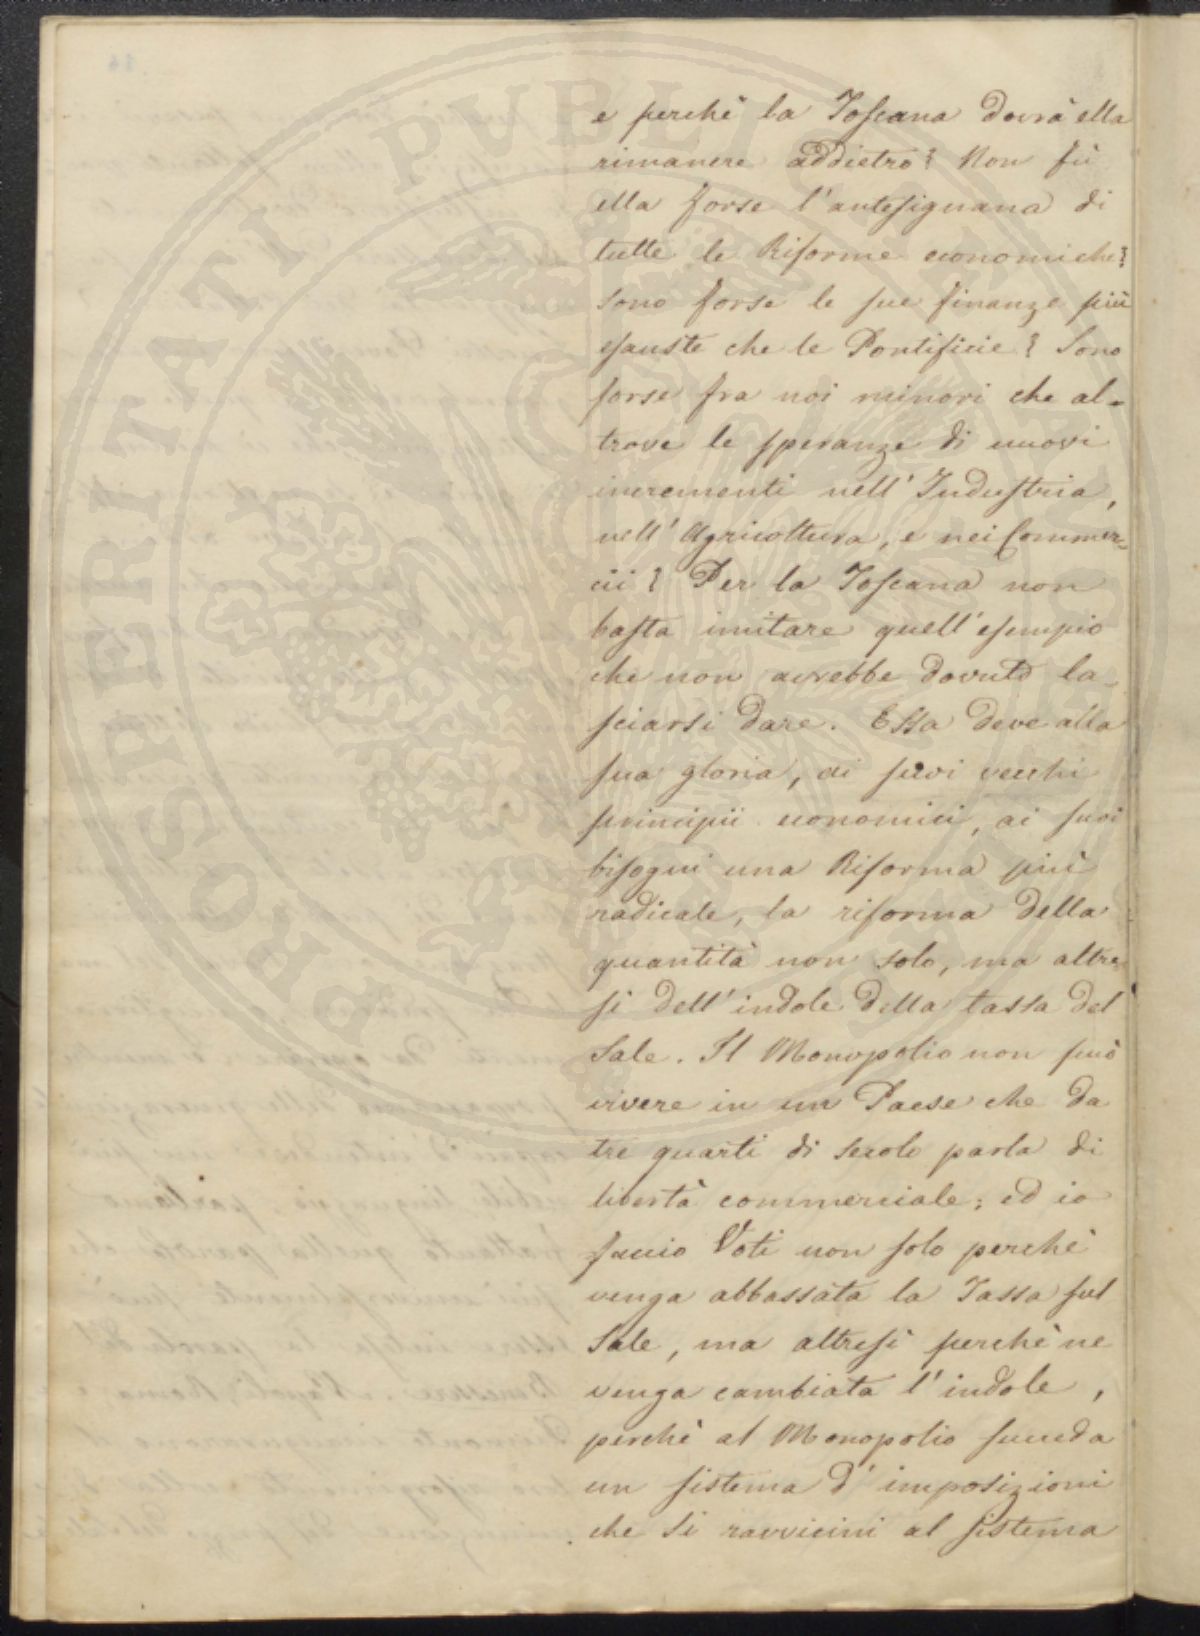 e perchè la Toscana dovrà ella
rimanere addietro? Non fù
ella forse l'antesignana di
tutte le Riforme economiche?
Sono forse le sue finanze più
esauste che le Pontificie? Sono
forse fra noi minori che al=
trove le speranze di nuovi
incrementi nell'Industria,
nell'Agricoltura, e nei Commer=
cii? Per la Toscana non
basta imitare quell'esempio
che non avrebbe dovuto la=
sciarsi dare. Essa deve alla
sua gloria, ai suoi vecchi
principii economici, ai suoi
bisogni una Riforma più
radicale, la riforma della
quantità non solo, ma altre
sì dell'indole della tassa del
Sale. Il Monopolio non può
vivere in un Paese che da
tre quarti di secolo parla di
libertà commerciale; ed io
faccio Voti non solo perchè
venga abbassata la Tassa sul
Sale, ma altresì perchè ne
venga cambiata l'indole,
perchè al Monopolio succeda
un sistema d'imposizioni
che si ravvicini al sistema
PROSPERITATI PVBLICAE